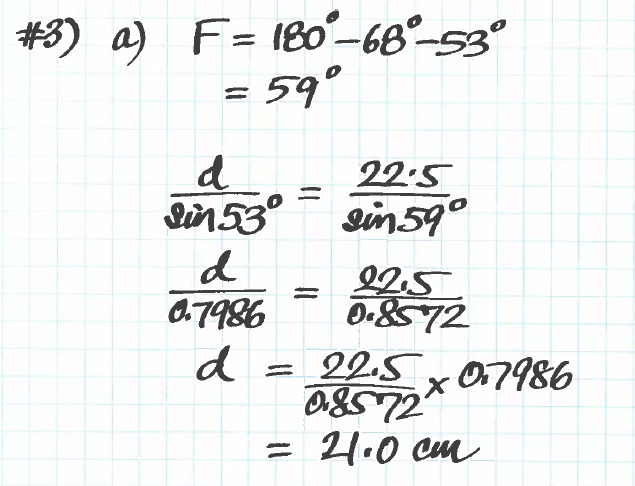 #3) a) F = 180° - 68° - 53°
= 59°
d/sin 53° = 22.5/sin 59°
d/0.7986 = 22.5/0.8572
d = 22.5/0.8572 × 0.7986
= 21.0 cm